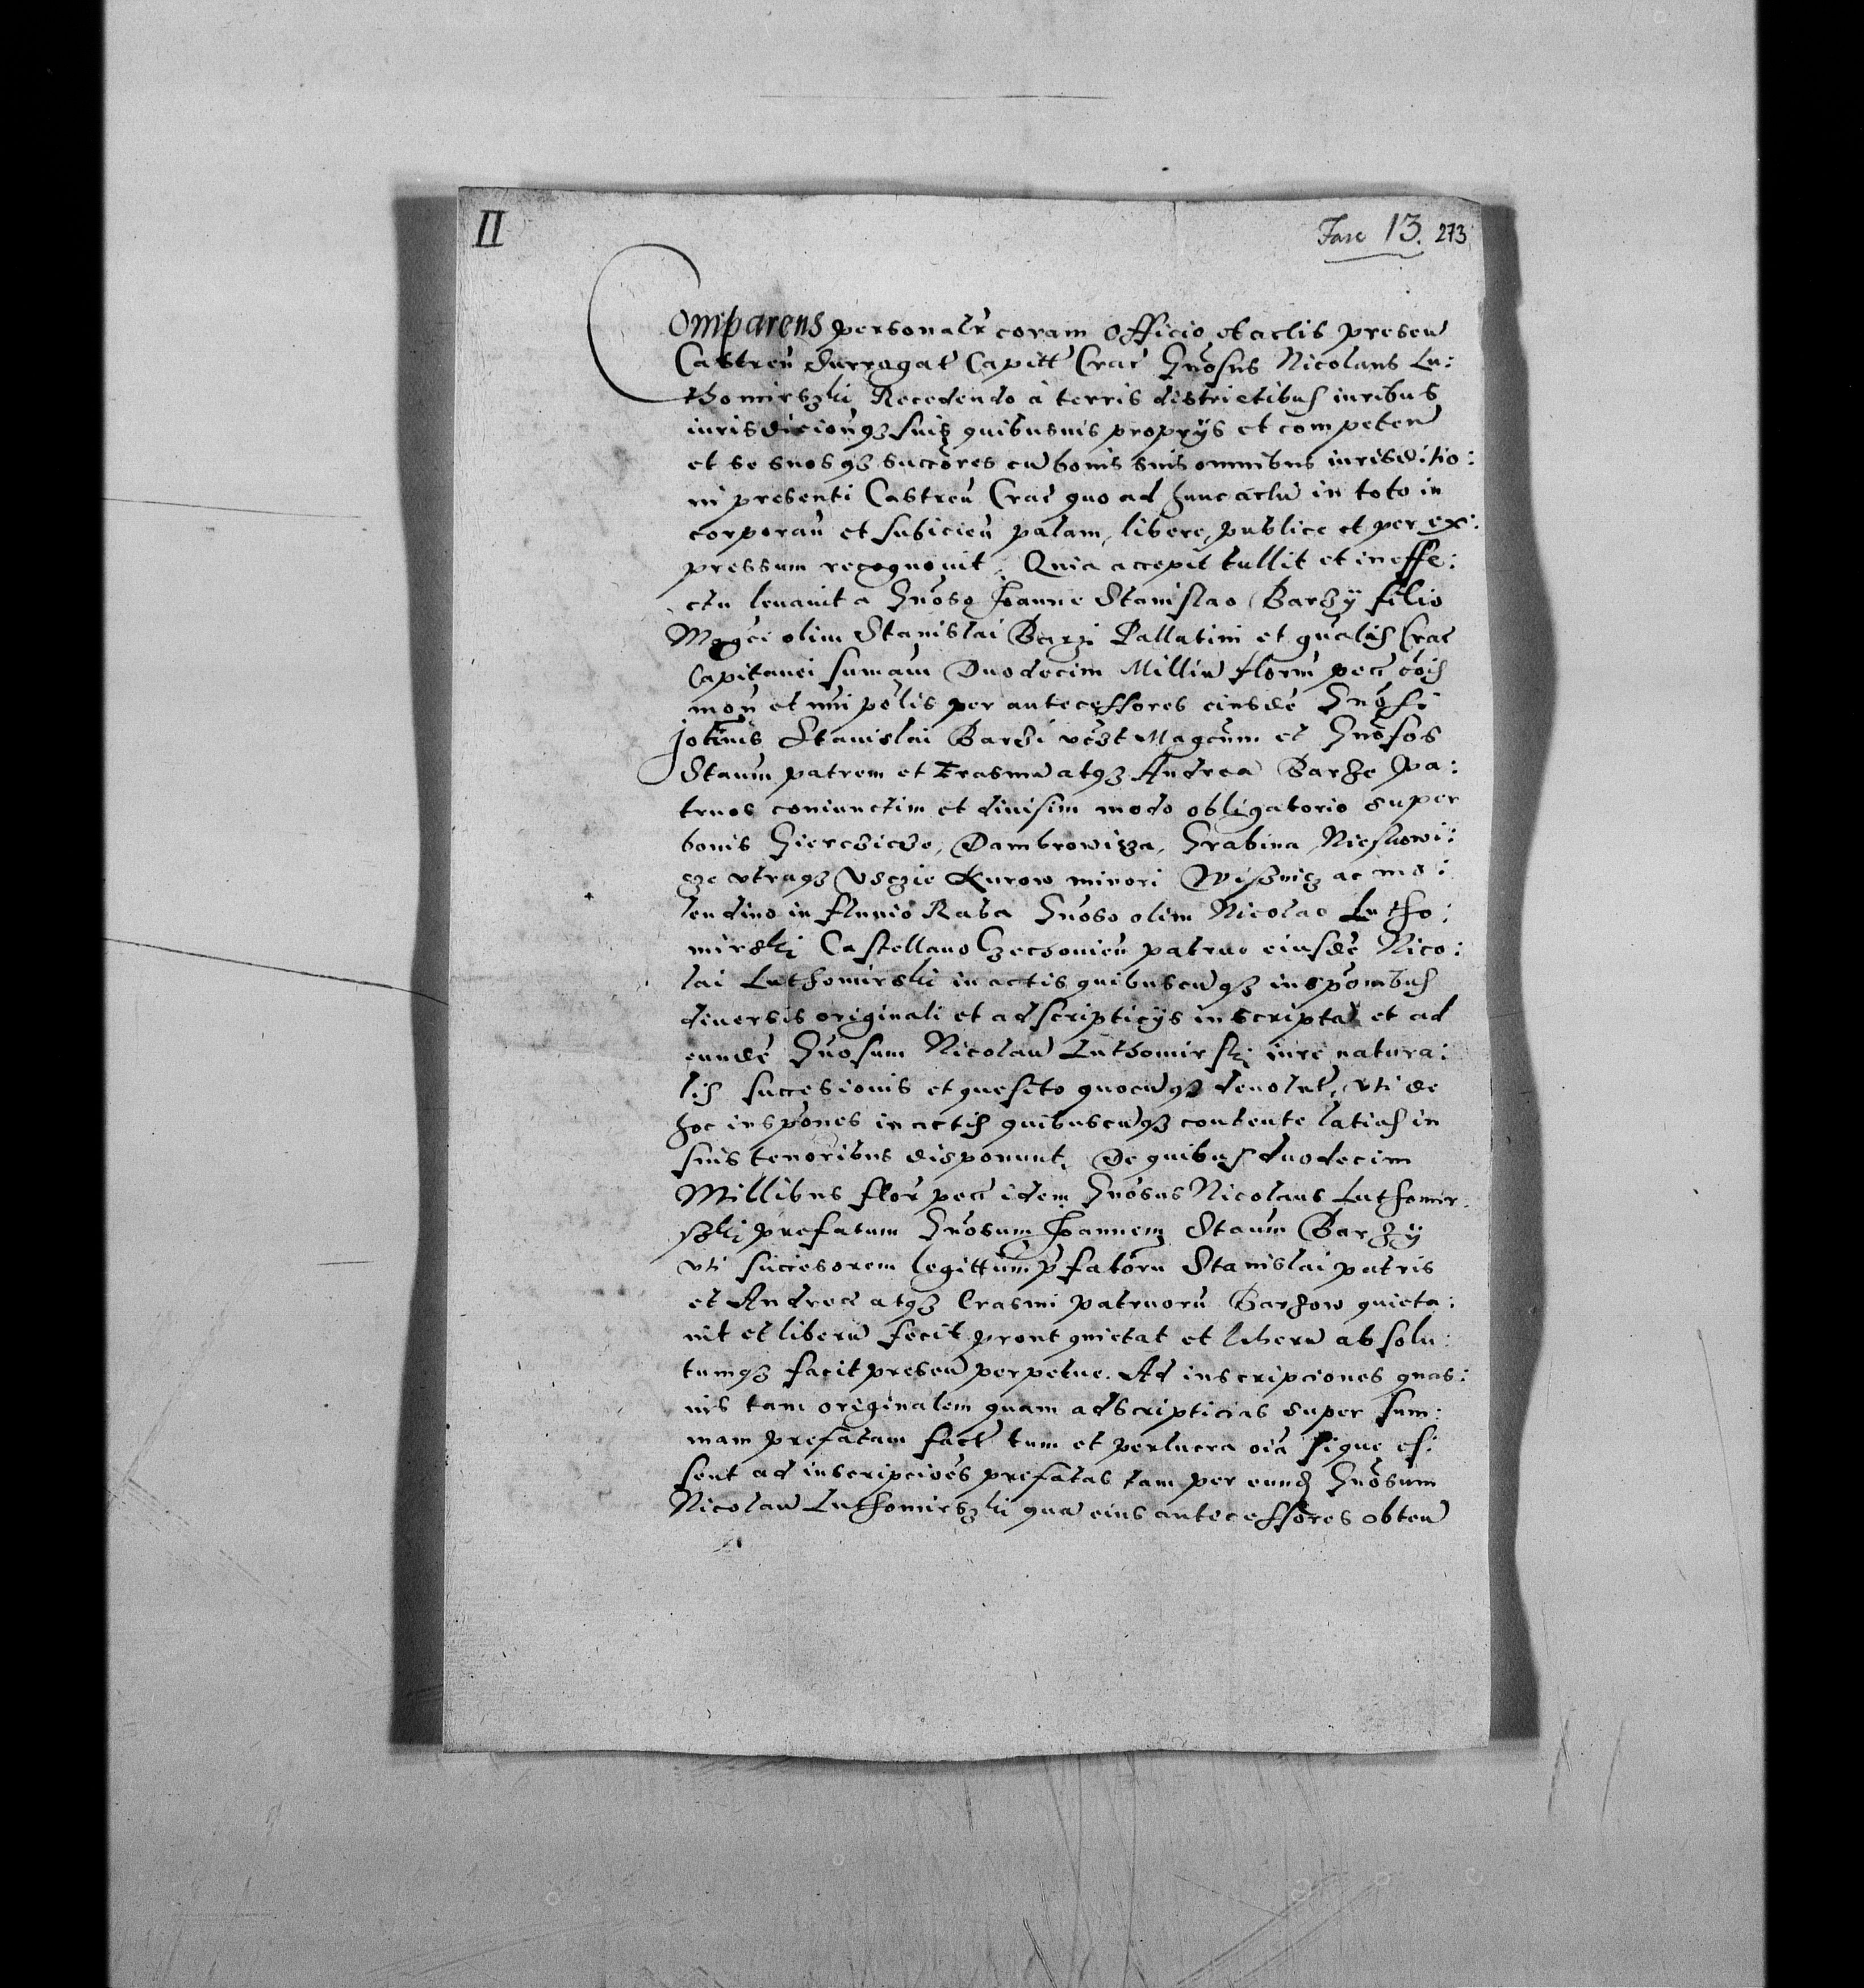 II
Fasc 13. 273
Comparens personalr coram Officio et actis presen
Castren Surrogat Capitt Crac Gnosus Nicolaus Lu:
thomirszki Recedendo a terris districtibus iuribus
iurisdicionqz suis quibusuis proprys et competen
et se suosqz succores cu bonis suis omnibus iurisditio:
ni presenti Castren Crac quo ad hunc actu in toto in
corporan et subicien palam, libere, publice et per ex:
pressum recognouit. Quia accepit tullit et in effe:
ctu leuauit a Gnoso Joanne Stanislao Barzy filio
Magci olim Stanislai Barzi Pallatini et gnalis Crac
Capitanei sumam Duodecim Milliu florm pecc cois
mon et nui polis per antecessores eiusde Gnosi
Joannis Stanislai Barzi vczt Magcum et Gnosos
Stanm patrem et Erasmu atqz Andrea Barze pa:
truos coniunctim et diuisim modo obligatorio super
bonis Gierczicze, Dambrowicza, Grabina, Nieskowi:
cze vtraqz Vsczie Kurow minori Wisznicz ac mo:
lendino in fluuio Raba Gnoso olim Nicolao Lutho:
mirski Castellano Czechouien patruo eiusde Nico:
lai Luthomirski in actis quibuscuqz inspombus
diuersis originali et adscripticys inscripta et ad
eunde Gnosum Nicolau Luthomirski iure natura:
lis succesionis et quesito quocuqz deuolut, vti de
hoc inspones in actis quibuscuqz contente latius in
suis tenoribus disponunt. De quibus duodecim
Millibus flor pecc idem Gnosus Nicolaus Luthomir
szki prefatum Gnosum Joannem Stanm Barzy
vti succesorem legittimum pfatoru Stanislai patris
et Andree atqz Erasmi patruoru Barzow quieta:
uit et liberu fecit prout quietat et liberu absolu:
tumqz facit presen perpetue. Ad inscripciones quas:
uis tam originalem quam adscripticias super sum:
mam prefatam fact tum et per lucra oia sique es:
sent ad inscripcioes prefatas tam per eund Gnosum
Nicolau Luthomirszki qua eius antecessores obten